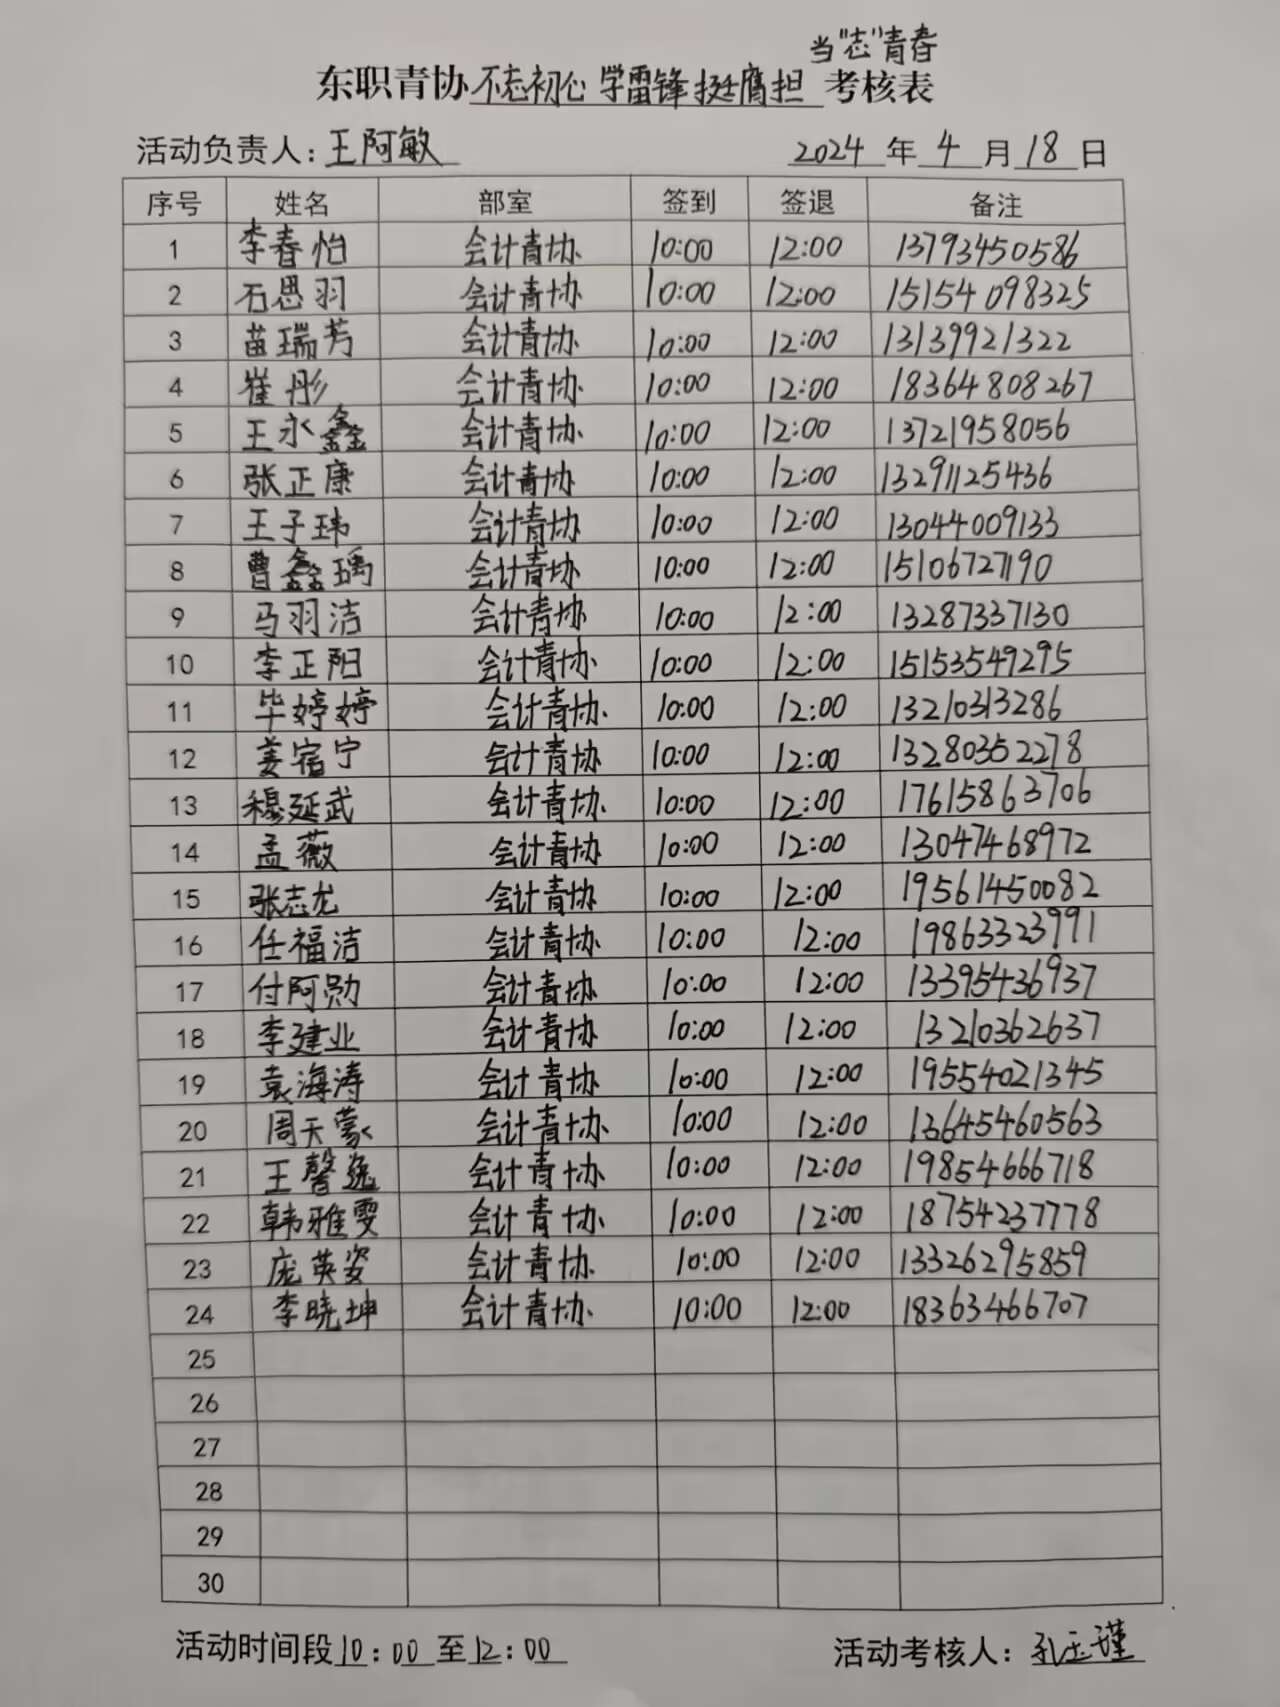 当“志”青春
东职青协不忘初心 学雷锋 挺膺担考核表
活动负责人：王阿敏 2024 年 4 月 18 日
序号 姓名 部室 签到 签退 备注
1 李春怡 会计青协 10:00 12:00 13793450586
2 石思羽 会计青协 10:00 12:00 15154098325
3 苗瑞芳 会计青协 10:00 12:00 13139921322
4 崔彤 会计青协 10:00 12:00 18364808267
5 王永鑫 会计青协 10:00 12:00 13721958056
6 张正康 会计青协 10:00 12:00 13291125436
7 王子玮 会计青协 10:00 12:00 13044009133
8 曹鑫瑀 会计青协 10:00 12:00 15106727190
9 马羽洁 会计青协 10:00 12:00 13287337130
10 李正阳 会计青协 10:00 12:00 15153549295
11 毕婷婷 会计青协 10:00 12:00 13210313286
12 姜宿宁 会计青协 10:00 12:00 13280352278
13 穆延武 会计青协 10:00 12:00 17615863706
14 孟薇 会计青协 10:00 12:00 13047468972
15 张志龙 会计青协 10:00 12:00 19561450082
16 任福洁 会计青协 10:00 12:00 19863323991
17 付阿勋 会计青协 10:00 12:00 13395436937
18 李建业 会计青协 10:00 12:00 13210362637
19 袁海涛 会计青协 10:00 12:00 19554021345
20 周天蒙 会计青协 10:00 12:00 13645460563
21 王馨逸 会计青协 10:00 12:00 19854666718
22 韩雅雯 会计青协 10:00 12:00 18754237778
23 庞英姿 会计青协 10:00 12:00 13326295859
24 李晓坤 会计青协 10:00 12:00 18363466707
25
26
27
28
29
30
活动时间段10：00 至12：00 活动考核人：孔玉瑾